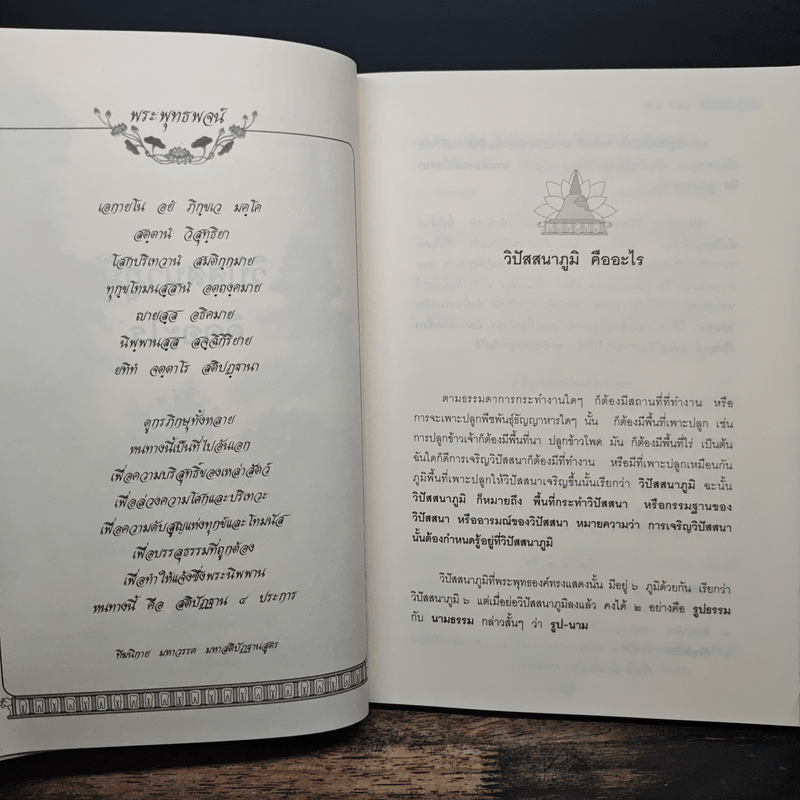 พระพุทธพจน์
เอกายโน อยํ ภิกฺขเว มคฺโค
สตฺตานํ วิสุทฺธิยา
โสกปริเทวานํ สมติกฺกมาย
ทุกฺขโทมนสฺสานํ อตฺถงฺคมาย
ญายสฺส อธิคมาย
นิพฺพานสฺส สจฺฉิกิริยาย
ยทิทํ จตฺตาโร สติปฏฺฐานา
ดูกรภิกษุทั้งหลาย
หนทางนี้เป็นที่ไปอันเอก
เพื่อความบริสุทธิ์ของเหล่าสัตว์
เพื่อล่วงความโศกและปริเทวะ
เพื่อความดับสูญแห่งทุกข์และโทมนัส
เพื่อบรรลุธรรมที่ถูกต้อง
เพื่อทำให้แจ้งซึ่งพระนิพพาน
หนทางนี้ คือ สติปัฏฐาน ๔ ประการ
ทีฆนิกาย มหาวรรค มหาสติปัฏฐานสูตร
วิปัสสนาภูมิ คืออะไร
ตามธรรมดาการกระทำงานใดๆ ก็ต้องมีสถานที่ที่ทำงาน หรือ
การจะเพาะปลูกพืชพันธุ์ธัญญาหารใดๆ นั้น ก็ต้องมีพื้นที่เพาะปลูก เช่น
การปลูกข้าวเจ้าก็ต้องมีพื้นที่นา ปลูกข้าวโพด มัน ก็ต้องมีพื้นที่ไร่ เป็นต้น
ฉันใดก็ดีการเจริญวิปัสสนาก็ต้องมีที่ทำงาน หรือมีที่เพาะปลูกเหมือนกัน
ภูมิพื้นที่เพาะปลูกให้วิปัสสนาเจริญขึ้นนั้นเรียกว่า วิปัสสนาภูมิ ฉะนั้น
วิปัสสนาภูมิ ก็หมายถึง พื้นที่กระทำวิปัสสนา หรือกรรมฐานของ
วิปัสสนา หรืออารมณ์ของวิปัสสนา หมายความว่า การเจริญวิปัสสนา
นั้นต้องกำหนดรู้อยู่ที่วิปัสสนาภูมิ
วิปัสสนาภูมิที่พระพุทธองค์ทรงแสดงนั้น มีอยู่ ๖ ภูมิด้วยกัน เรียกว่า
วิปัสสนาภูมิ ๖ แต่เมื่อย่อวิปัสสนาภูมิลงแล้ว คงได้ ๒ อย่างคือ รูปธรรม
กับ นามธรรม กล่าวสั้นๆ ว่า รูป-นาม